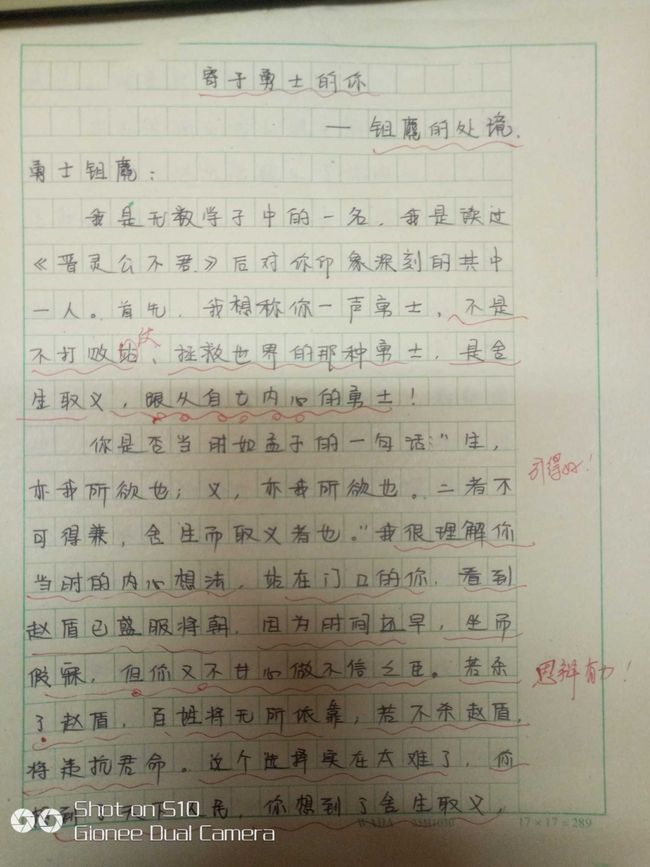 寄予勇士的你
— 鉏麑的处境.
勇士鉏麑：
我是无数学子中的一名，我是读过
《晋灵公不君》后对你印象深刻的其中
一人。首先，我想称你一声勇士，不是
不打败仗、拯救世界的那种勇士，是舍
生取义，跟从自己内心的勇士！
你是否当时如孟子的一句话："生，
亦我所欲也；义，亦我所欲也。二者不
引得好！
可得兼，舍生而取义者也。"我很理解你
当时的内心想法，站在门口的你，看到
赵盾已盛服将朝，因为时间还早，坐而
假寐，但你又不甘心做不信之臣。若杀
思辨有力！
了赵盾，百姓将无所依靠；若不杀赵盾，
将违抗君命。这个选择实在太难了，你
天下人民，你想到了舍生取义，
Shot on S10
Gionee Dual Camera
17×17=289